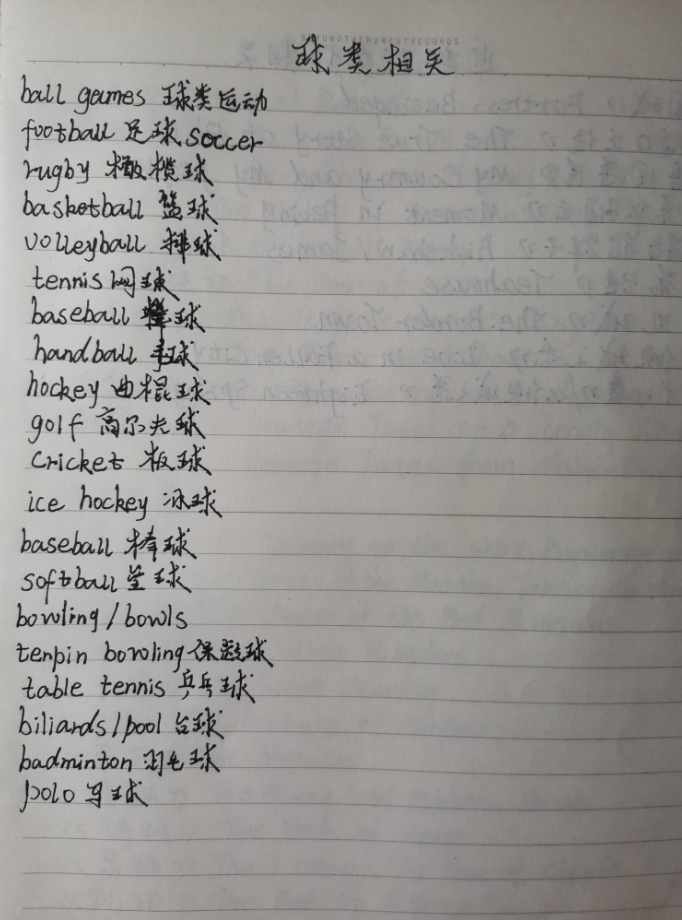 球类相关
ball games 球类运动
football 足球 soccer
rugby 橄榄球
basketball 篮球
volleyball 排球
tennis 网球
baseball 棒球
handball 手球
hockey 曲棍球
golf 高尔夫球
cricket 板球
ice hockey 冰球
baseball 棒球
softball 垒球
bowling/bowls
tenpin bowling 保龄球
table tennis 乒乓球
biliards/pool 台球
badminton 羽毛球
polo 马球